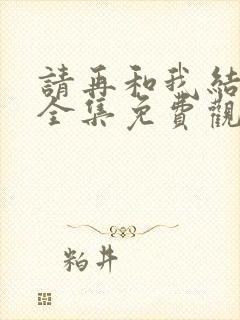 請再和我結
全集免費觀
粕井